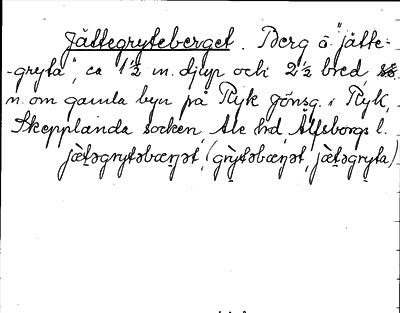 Jättegryteberget. Berg o. "jätte-
-gryta", ca 1½ m. djup och 2½ bred,
n. om gamla byn på Ryk Jönsg. i Ryk,
Skepplanda socken, Ale hd, Älfsborgs l.
jæ̀təgrytəbærjət, (gry̆təbærjət, jæ̀təgry̆ta)